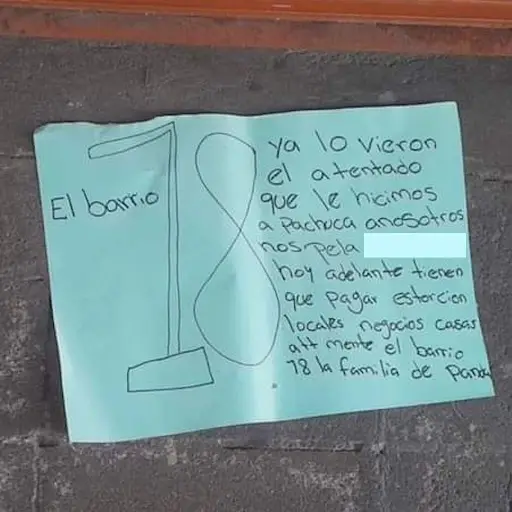 El barrio
18
ya lo vieron
el atentado
que le hicimos
a Pachuca anosotros
nos pela
hoy adelante tienen
que pagar estorcion
locales negocios casas
att mente el barrio
18 la familia de